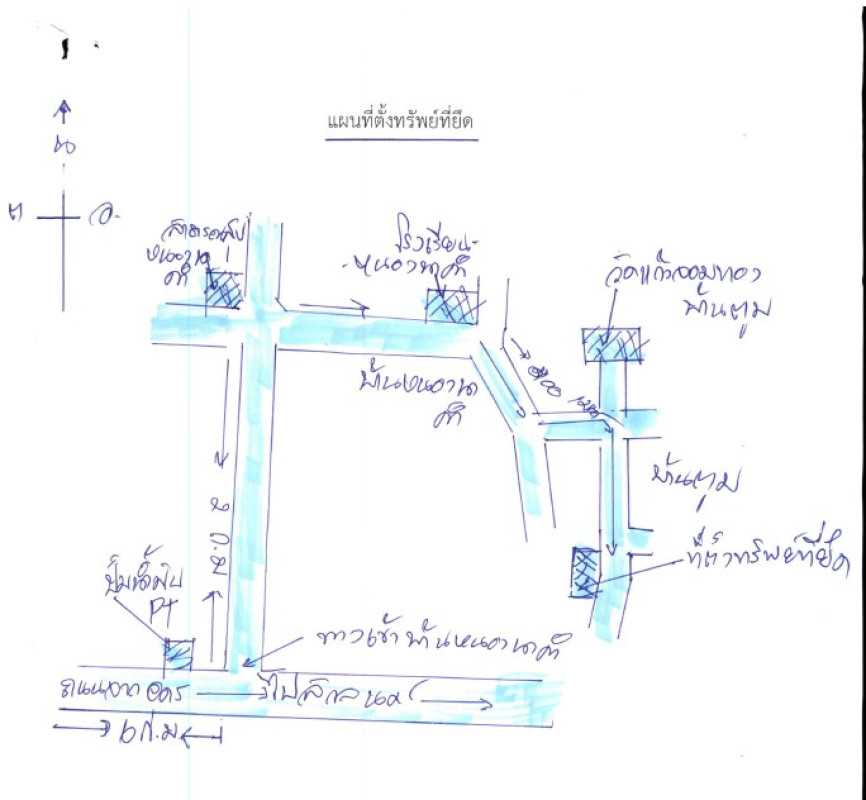 แผนที่ตั้งทรัพย์ที่ยึด
น
ต
อ.
หนองนาคำ
โรงเรียน
หนองนาคำ
วัดแก้วจอมทอง
บ้านตูม
บ้านหนองนา
คำ
800 เมตร
บ้านตูม
2 ก.ม
ที่ตั้งทรัพย์ที่ยึด
ปั๊มน้ำมัน
PT
ทางเข้าบ้านหนองนาคำ
ถนนจาก อุดร
ไปสกลนคร
6 ก.ม